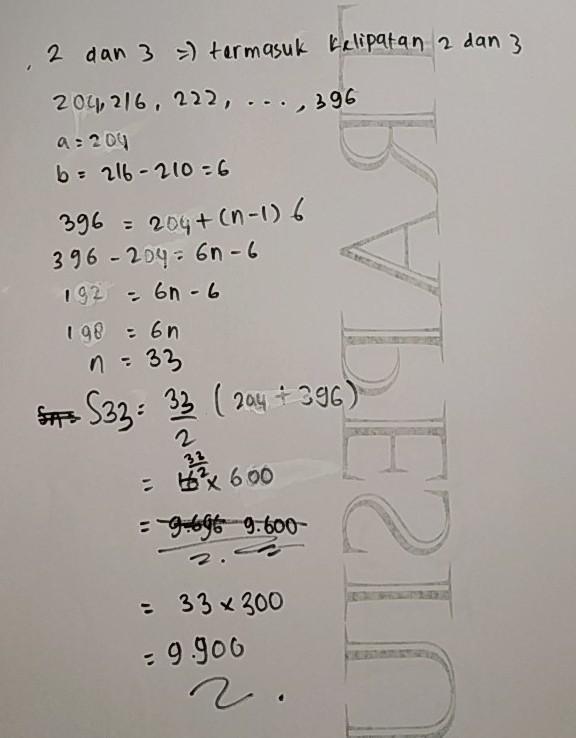 , 2 dan 3 => termasuk kelipatan 2 dan 3
204, 216, 222, ..., 396
a = 204
b = 216 - 210 = 6
396 = 204 + (n-1) 6
396 - 204 = 6n - 6
192 = 6n - 6
198 = 6n
n = 33
Sn = S33 = 33/2 (204 + 396)
= 33/2 x 600
= 9.696 9.600
= 33 x 300
= 9.900